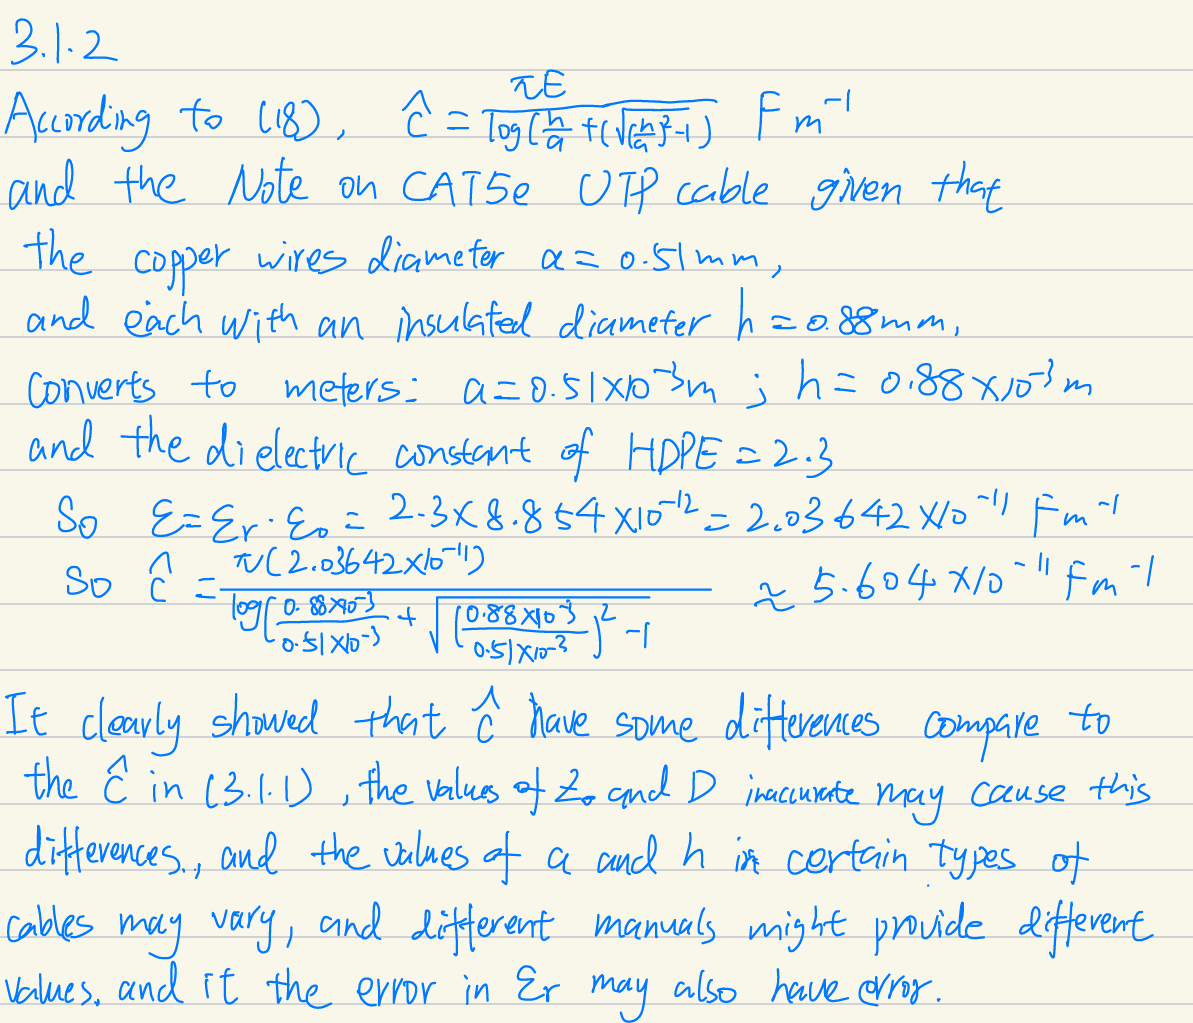 3.1.2
According to (18), ĉ = πE / log(h/a + (√((h/a)²-1)) F m⁻¹
and the Note on CAT5e UTP cable given that
the copper wires diameter a = 0.51mm,
and each with an insulated diameter h = 0.88mm,
converts to meters: a = 0.51×10⁻³m ; h = 0.88×10⁻³m
and the dielectric constant of HDPE = 2.3
So ε = εr · ε₀ = 2.3×8.854×10⁻¹² = 2.03642×10⁻¹¹ Fm⁻¹
So ĉ = π(2.03642×10⁻¹¹) / log(0.88×10⁻³/0.51×10⁻³ + √(0.88×10⁻³/0.51×10⁻³)² -1 ≈ 5.604×10⁻¹¹ Fm⁻¹
It clearly showed that ĉ have some differences compare to
the ĉ in (3.1.1), the values of Z₀ and D inaccurate may cause this
differences., and the values of a and h in certain types of
cables may vary, and different manuals might provide different
values, and it the error in εr may also have error.